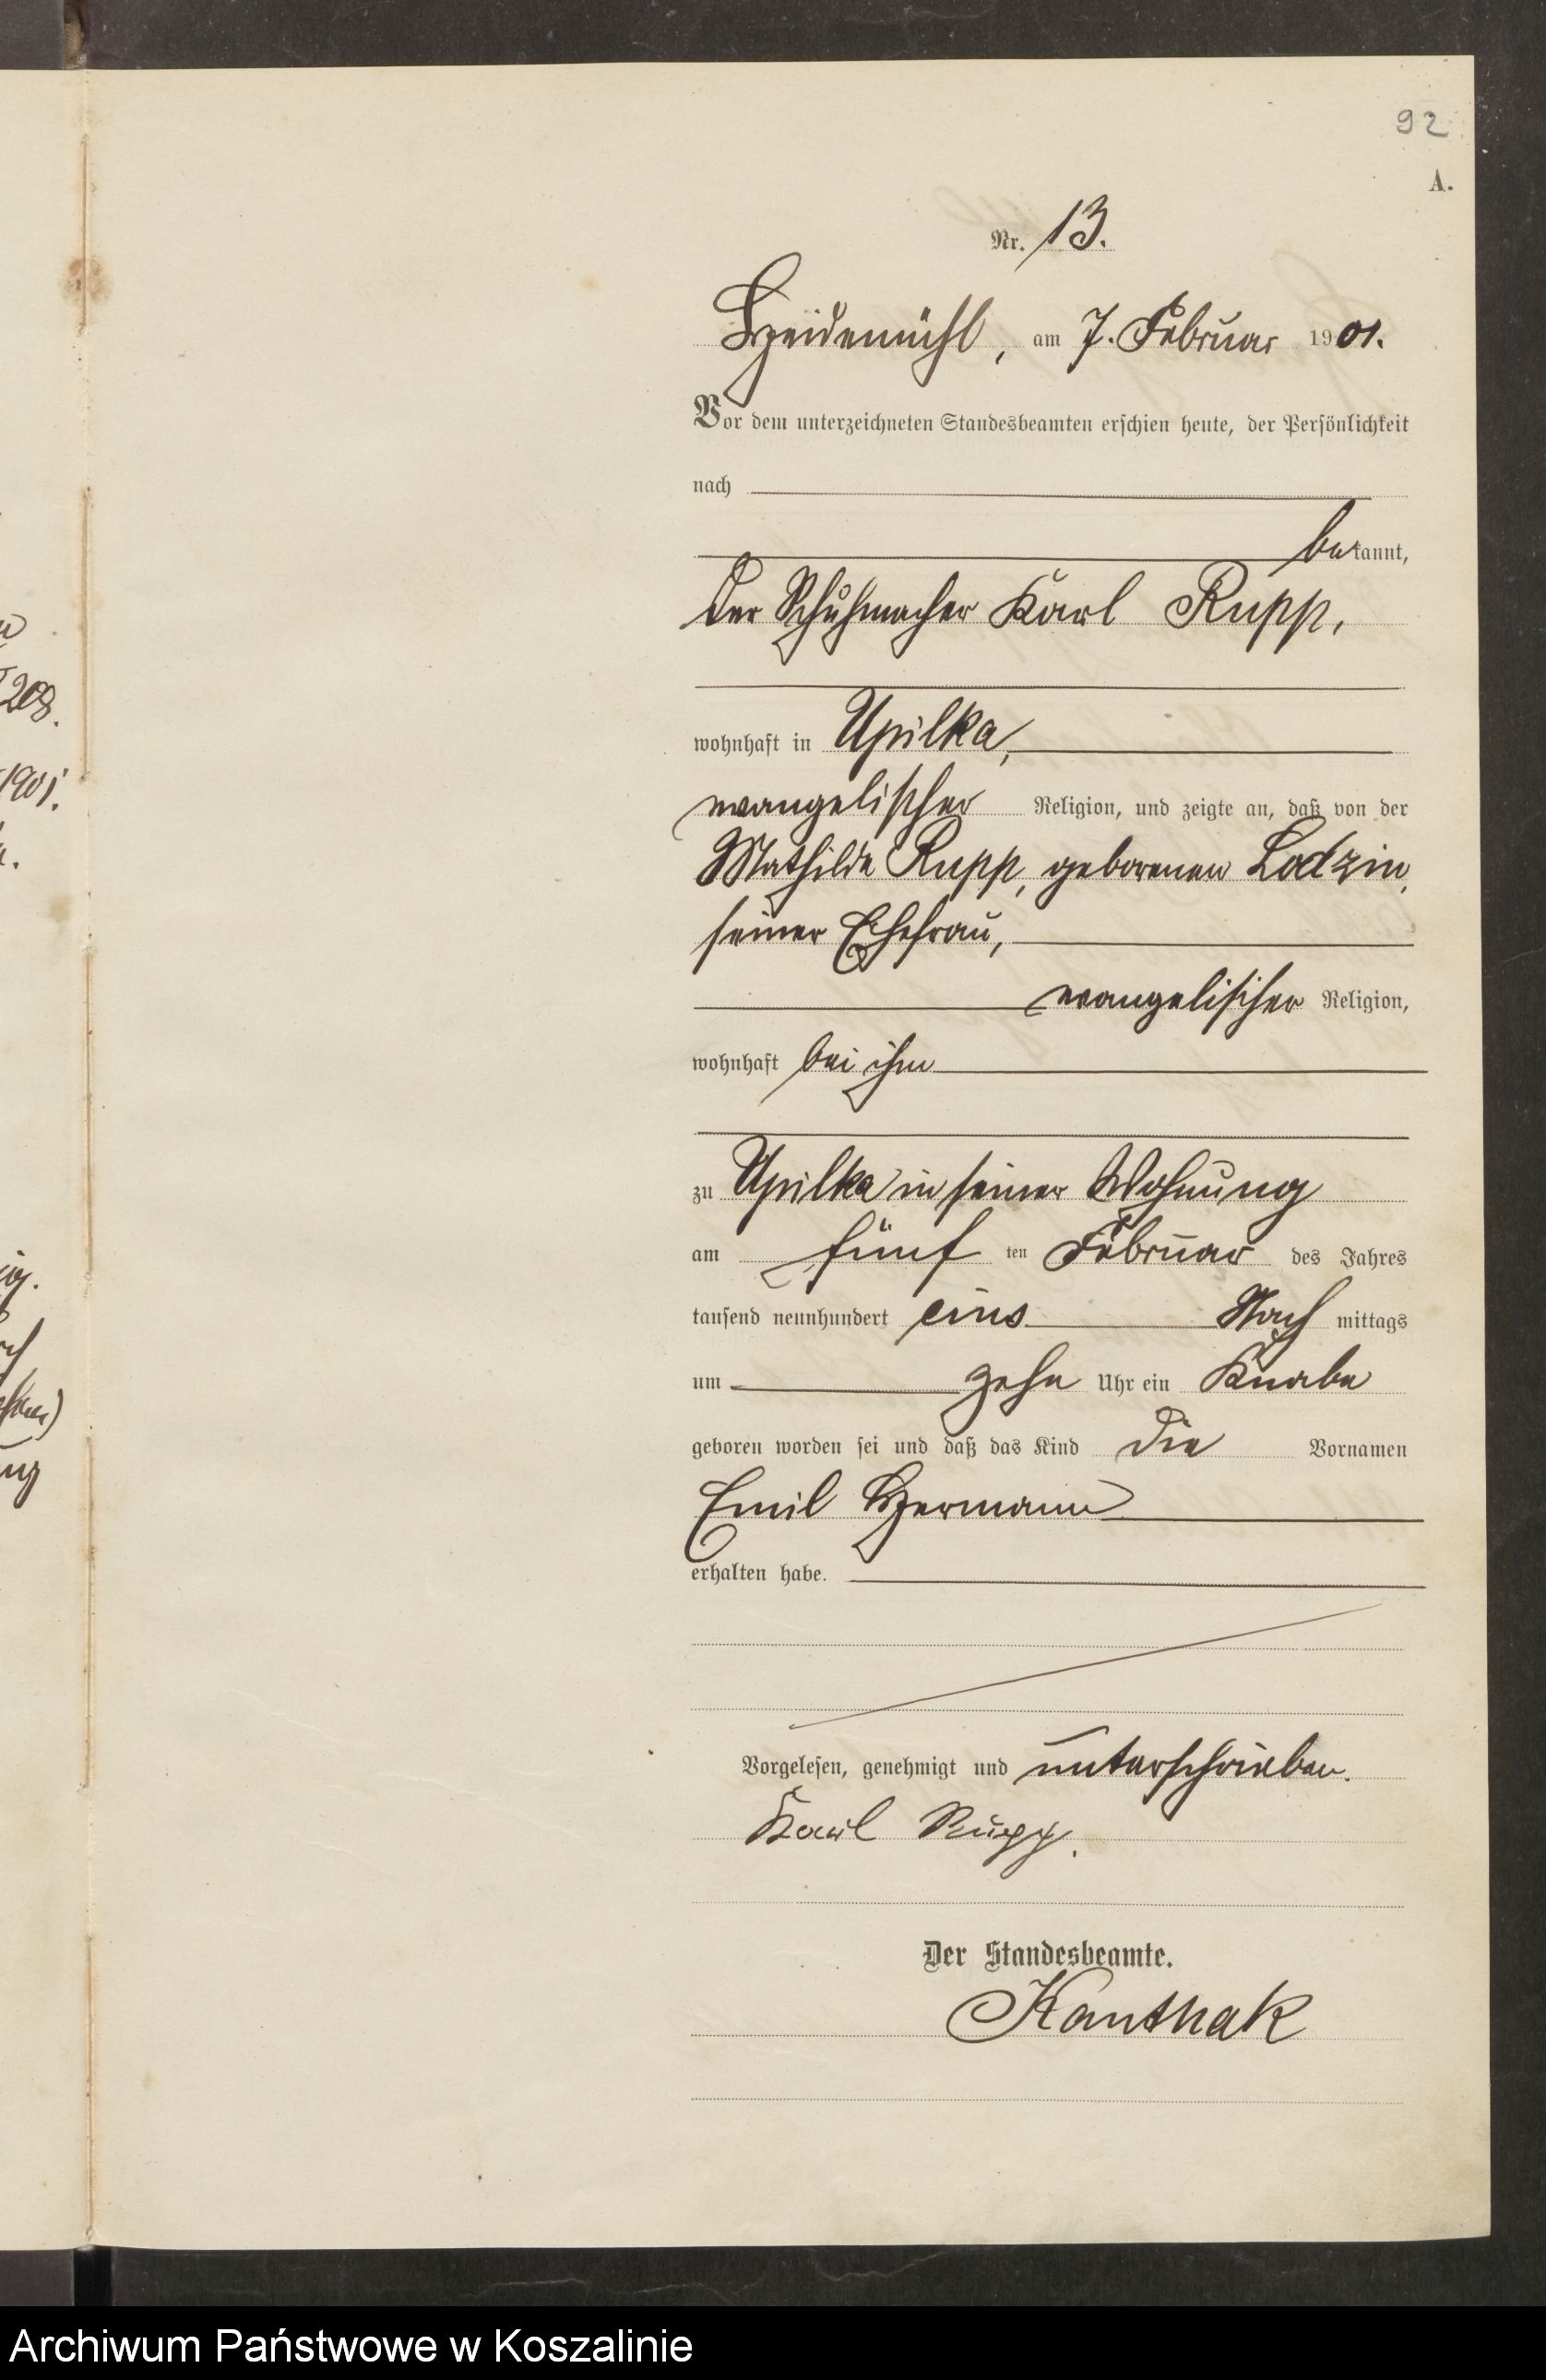 92
A.
Nr. 13.
Heidemühl, am 7. Februar 1901.
Vor dem unterzeichneten Standesbeamten erschien heute, der Persönlichkeit
nach
bekannt,
der Schuhmacher Karl Rupp,
wohnhaft in Upilka,
evangelischer Religion, und zeigte an, daß von der
Mathilde Rupp, geborenen Lodzin,
seiner Ehefrau,
evangelischer Religion,
wohnhaft bei ihm
zu Upilka in seiner Wohnung
am fünf ten Februar des Jahres
tausend neunhundert eins Nach mittags
um zehn Uhr ein Knabe
geboren worden sei und daß das Kind die Vornamen
Emil Hermann
erhalten habe.
Vorgelesen, genehmigt und unterschrieben.
Karl Rupp.
Der Standesbeamte.
Kanthak
208.
1901.
Archiwum Państwowe w Koszalinie